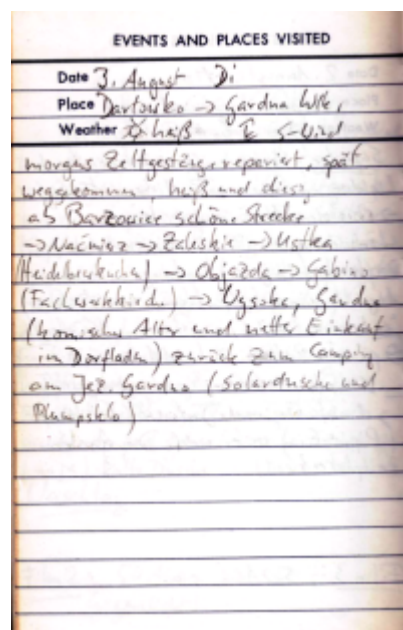 EVENTS AND PLACES VISITED
Date 3. August Di
Place Darłówko -> Gardna Wlk.
Weather heiß S-Wind
morgens Zeltgestänge repariert, spät
weggekommen, heiß und diesig
ab Barzowice schöne Strecke
-> Naćmierz -> Zaleskie -> Ustka
(Heidelbeerkuchen) -> Objazda -> Gabino
(Fachwerkkirche) -> Wysoka, Gardna
(komischer Alter und netter Einkauf
im Dorfladen) zurück zum Camping
am Jez. Gardno (Solardusche und
Plumpsklo)